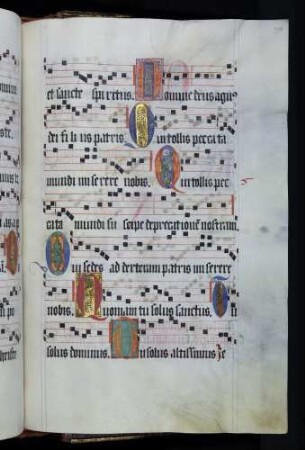 et sancte spiritus. Domine deus agn
dei filius patris. Qui tollis peccata
mundi miserere nobis. Qui tollis pec
cata mundi suscipe deprecationē nostram.
Qui sedes ad dexteram patris miserere
nobis. Quoniam tu solus sanctus. Tu
solus dominus. Tu solus altissimus Je